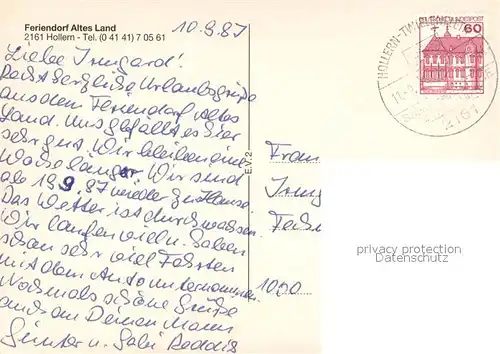 Feriendorf Altes Land
2161 Hollern - Tel. (0 41 41) 7 05 61
10.9.87
Liebe Irmgard!
Recht herzliche Urlaubsgrüße
aus dem Feriendorf Altes
Land. Uns gefällt es hier
sehr gut. Wir bleiben eine
Woche länger. Wir sind
ab 19.9.87 wieder zu Hause.
Das Wetter ist durchwachsen.
Wir laufen viel u. haben
schon sehr viel Fahrten
mit dem Auto unternommen.
Nochmals schöne Grüße
auch an Deinen Mann
Günter u. Gabi
E.V. 2
DEUTSCHE BUNDESPOST
60
HOLLERN-TWIELENFLETH
2161
Frau
1000
privacy protection
Datenschutz